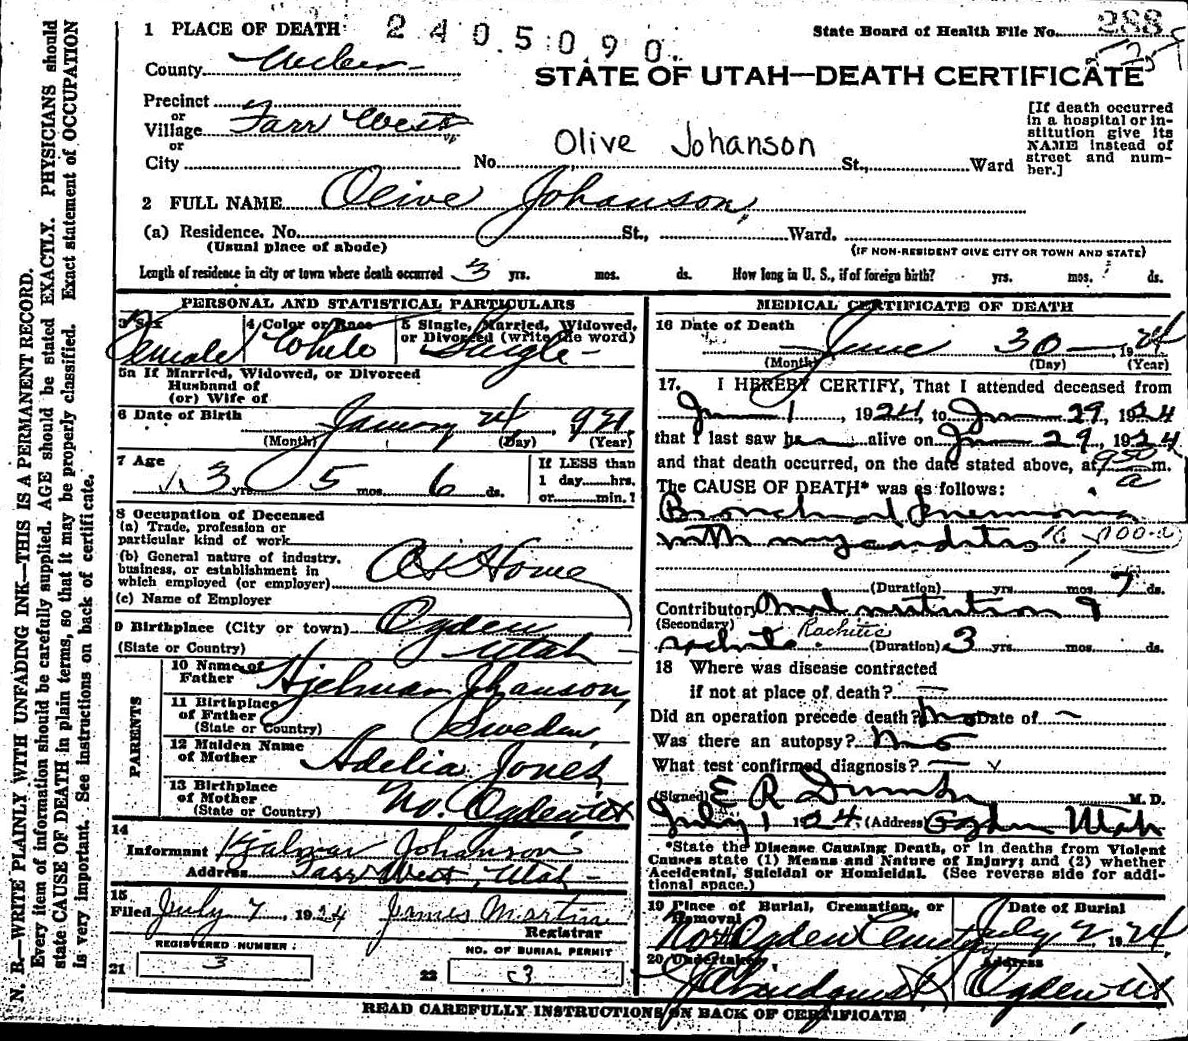 1 PLACE OF DEATH 2405090
State Board of Health File No. 288
County Weber
STATE OF UTAH—DEATH CERTIFICATE
Precinct
or
Village Farr West
or
City No. Olive Johanson St., Ward
[If death occurred
in a hospital or in-
stitution give its
NAME instead of
street and num-
ber.]
2 FULL NAME Olive Johanson
(a) Residence. No. St., Ward.
(Usual place of abode) (IF NON-RESIDENT GIVE CITY OR TOWN AND STATE)
Length of residence in city or town where death occurred 3 yrs. mos. ds. How long in U. S., if of foreign birth? yrs. mos. ds.
PERSONAL AND STATISTICAL PARTICULARS
3 Sex 4 Color or Race 5 Single, Married, Widowed,
or Divorced (write the word)
Female White Single
5a If Married, Widowed, or Divorced
Husband of
(or) Wife of
6 Date of Birth January 24, 1921
(Month) (Day) (Year)
7 Age 3 yrs. 5 mos. 6 ds.
If LESS than
1 day hrs.
or min.?
8 Occupation of Deceased
(a) Trade, profession or
particular kind of work
(b) General nature of industry,
business, or establishment in
which employed (or employer) At Home
(c) Name of Employer
9 Birthplace (City or town) Ogden
(State or Country) Utah
PARENTS
10 Name of
Father Hjelmar Johanson
11 Birthplace
of Father Sweden
(State or Country)
12 Maiden Name
of Mother Adelia Jones
13 Birthplace
of Mother No. Ogden Ut
(State or Country)
14
Informant Hjalmar Johanson
Address Farr West, Utah
15
Filed July 7, 1924 James Martin
Registrar
REGISTERED NUMBER: NO. OF BURIAL PERMIT
21 3 22 3
MEDICAL CERTIFICATE OF DEATH
16 Date of Death
June 30 1924
(Month) (Day) (Year)
17. I HEREBY CERTIFY, That I attended deceased from
Jun 1, 1924, to Jun 29, 1924
that I last saw her alive on Jun 29, 1924
and that death occurred, on the date stated above, at 950 a m.
The CAUSE OF DEATH* was as follows:
Bronchial Pneumonia
with myocarditis
(Duration) yrs. mos. 7 ds.
Contributory Malnutrition &
(Secondary)
rachitis Rachitis (Duration) 3 yrs. mos. ds.
18 Where was disease contracted
if not at place of death? —
Did an operation precede death? No Date of —
Was there an autopsy? No
What test confirmed diagnosis? —
(Signed) E R M. D.
July 1 1924 (Address) Ogden Utah
*State the Disease Causing Death, or in deaths from Violent
Causes state (1) Means and Nature of Injury; and (2) whether
Accidental, Suicidal or Homicidal. (See reverse side for addi-
tional space.)
19 Place of Burial, Cremation, or
Removal
Date of Burial
North Ogden Cemetery July 2, 1924
20 Undertaker Address
Ogden Ut
READ CAREFULLY INSTRUCTIONS ON BACK OF CERTIFICATE
N. B.—WRITE PLAINLY WITH UNFADING INK—THIS IS A PERMANENT RECORD.
Every item of information should be carefully supplied. AGE should be stated EXACTLY. PHYSICIANS should
state CAUSE OF DEATH in plain terms, so that it may be properly classified. Exact statement of OCCUPATION
is very important. See instructions on back of certificate.